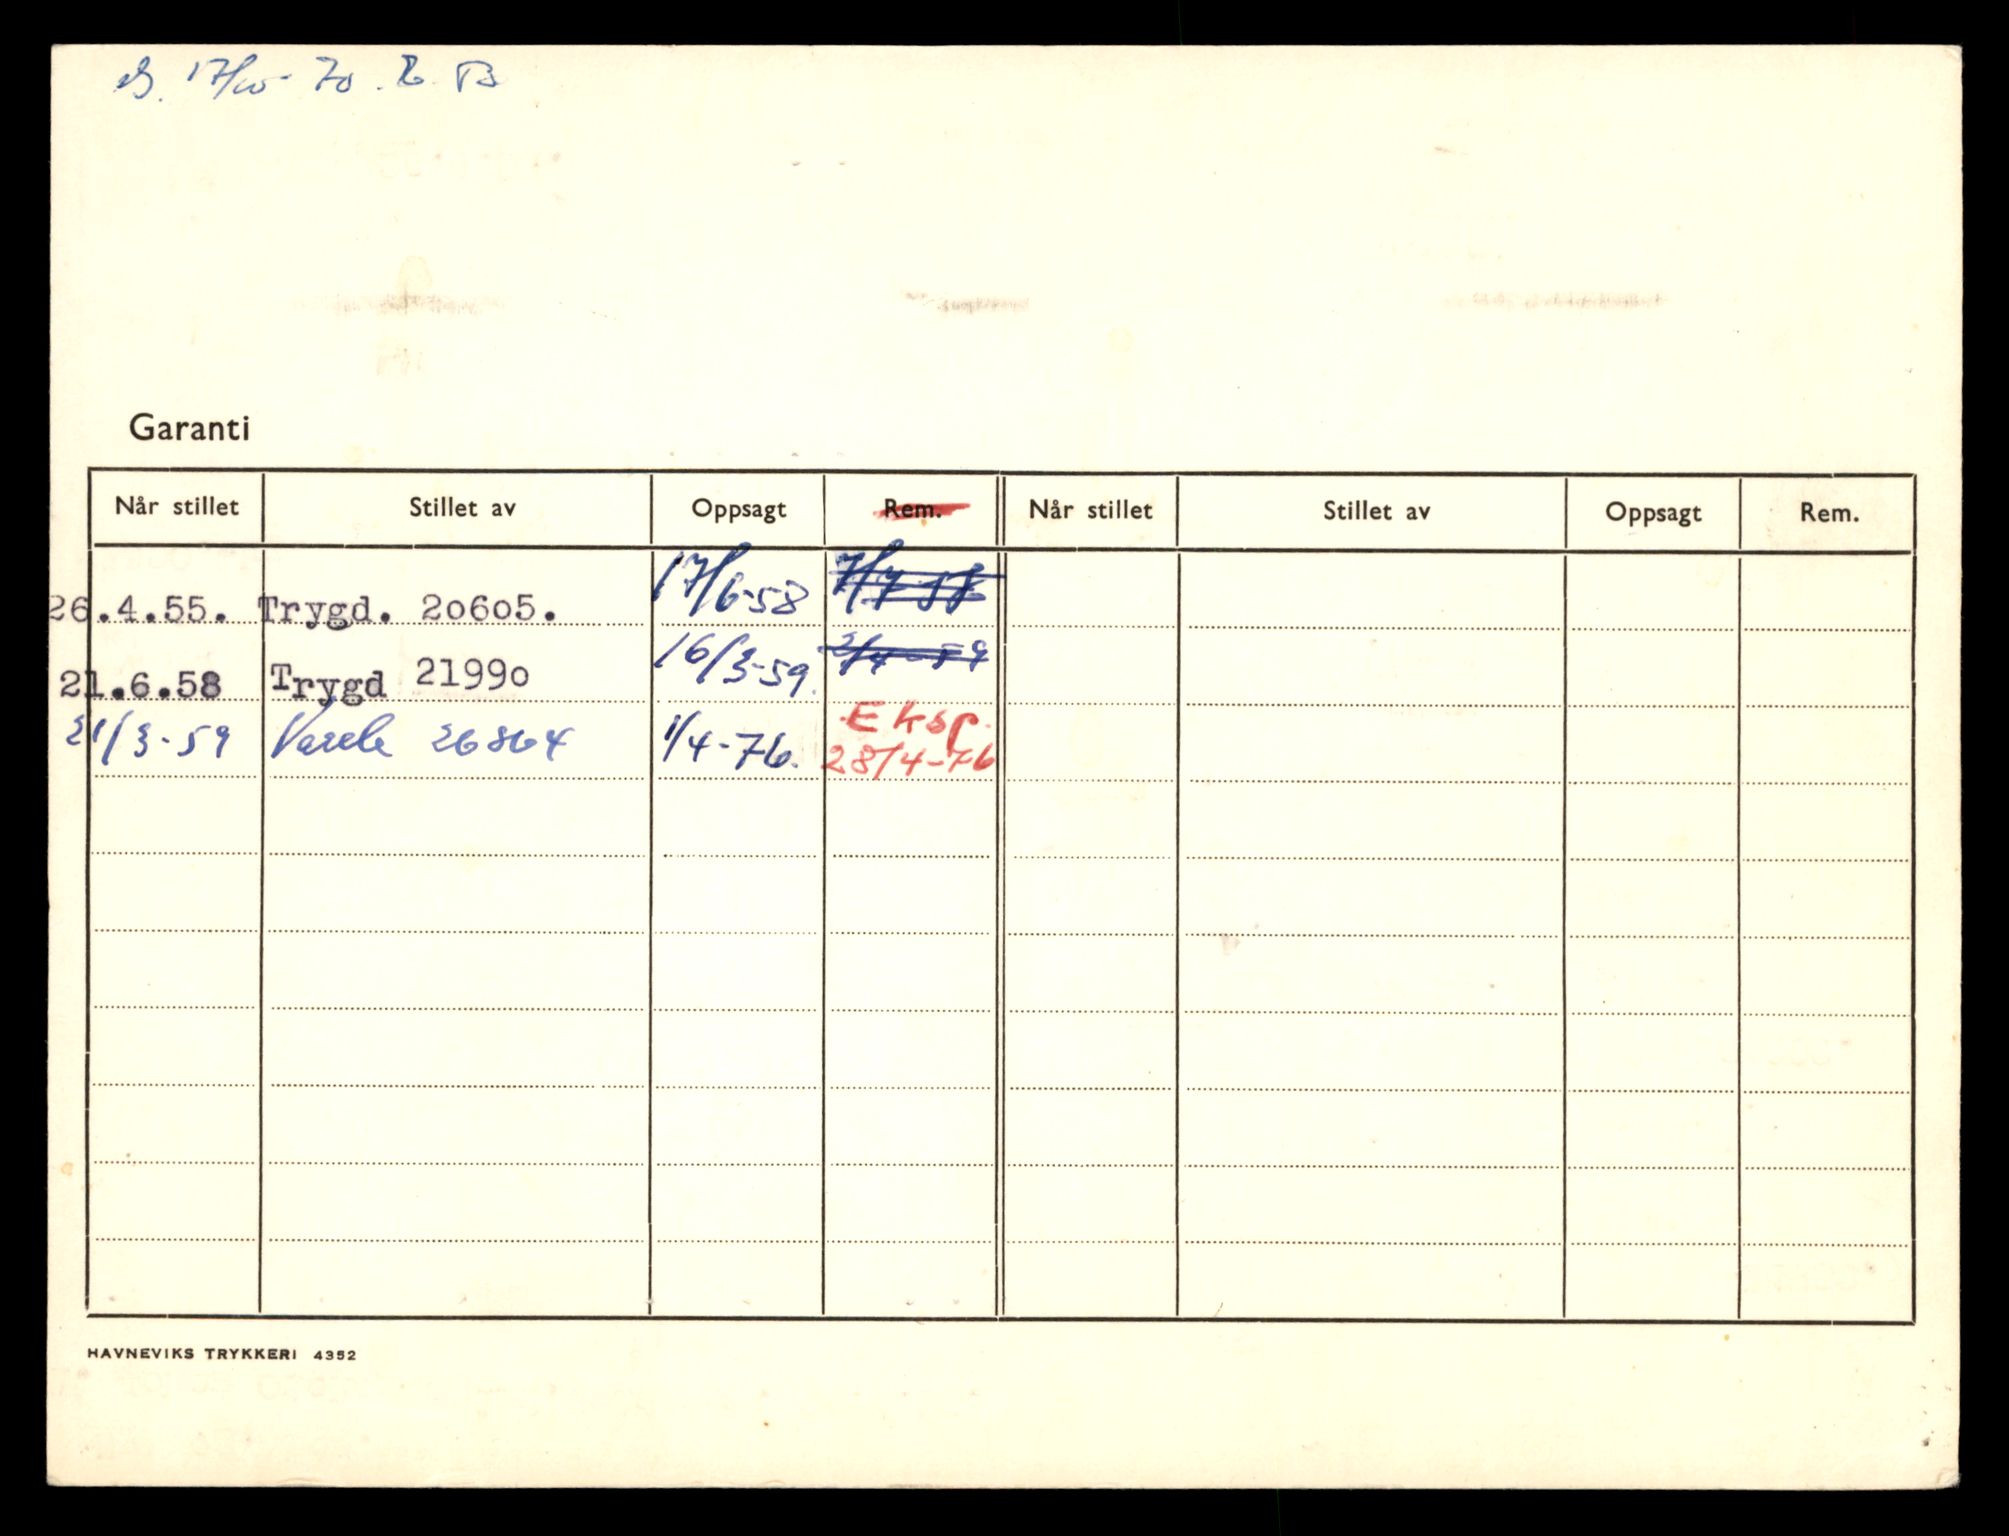 17/10-70.
Garanti
Når stillet Stillet av Oppsagt Rem. Når stillet Stillet av Oppsagt Rem.
26.4.55. Trygd. 20605. 17/6-58 7/7-58
21.6.58 Trygd 21990 16/3-59. 2/4-59
21/3-59 26864 1/4-76. Eksp.
28/4-76
HAVNEVIKS TRYKKERI 4352